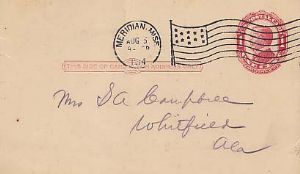 MERIDIAN, MISS.
AUG 5
1914
THIS SIDE OF CARD IS FOR ADDRESS ONLY
Mrs S A Campbell
Whitfield
Ala